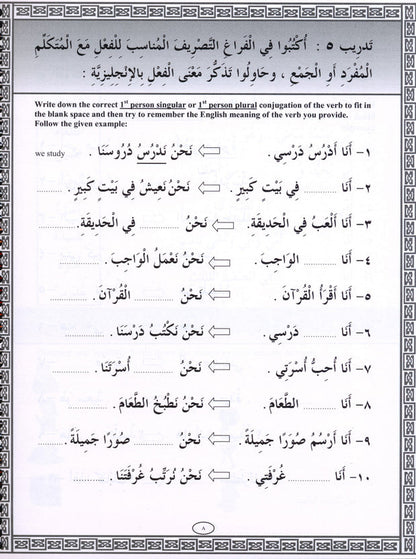 تَدريب ٥ : أُكْتُبُوا فِي الْفَراغِ التَّصْرِيفَ الْمُناسِبَ لِلْفِعْلِ مَعَ الْمُتَكَلِّمِ
الْمُفْرَدِ أَوِ الْجَمْعِ ، وَحَاوِلُوا تَذَكُّرَ مَعْنَى الْفِعْلِ بِالإنْجلِيزِيَّةِ :
Write down the correct 1st person singular or 1st person plural conjugation of the verb to fit in
the blank space and then try to remember the English meaning of the verb you provide.
Follow the given example:
١- أَنَا أَدْرُسُ دَرْسِي. ⇦ نَحْنُ نَدْرُسُ دُرُوسَنَا . we study
٢- أَنَا ......... فِي بَيْتٍ كَبِيرٍ . ⇦ نَحْنُ نَعِيشُ فِي بَيْتٍ كَبِيرٍ . .........
٣- أَنَا أَلْعَبُ فِي الْحَدِيقَةِ. ⇦ نَحْنُ ......... فِي الْحَدِيقَةِ. .........
٤- أَنَا ......... الوَاجِبَ . ⇦ نَحْنُ نَعْمَلُ الْوَاجِبَ . .........
٥- أَنَا أَقْرَأُ الْقُرْآنَ . ⇦ نَحْنُ ......... الْقُرْآنَ . .........
٦- أَنَا ......... دَرْسِي . ⇦ نَحْنُ نَكْتُبُ دَرْسَنَا . .........
٧- أَنَا أُحِبُّ أُسْرَتِي . ⇦ نَحْنُ ......... أُسْرَتَنَا . .........
٨- أَنَا ......... الطَّعَامَ . ⇦ نَحْنُ نَطْبُخُ الطَّعَامَ . .........
٩- أَنَا أَرْسُمُ صُوَرًا جَمِيلَةً . ⇦ نَحْنُ ......... صُوَرًا جَمِيلَةً . .........
١٠- أَنَا ......... غُرْفَتِي . ⇦ نَحْنُ نُرَتِّبُ غُرْفَتَنَا . .........
٨